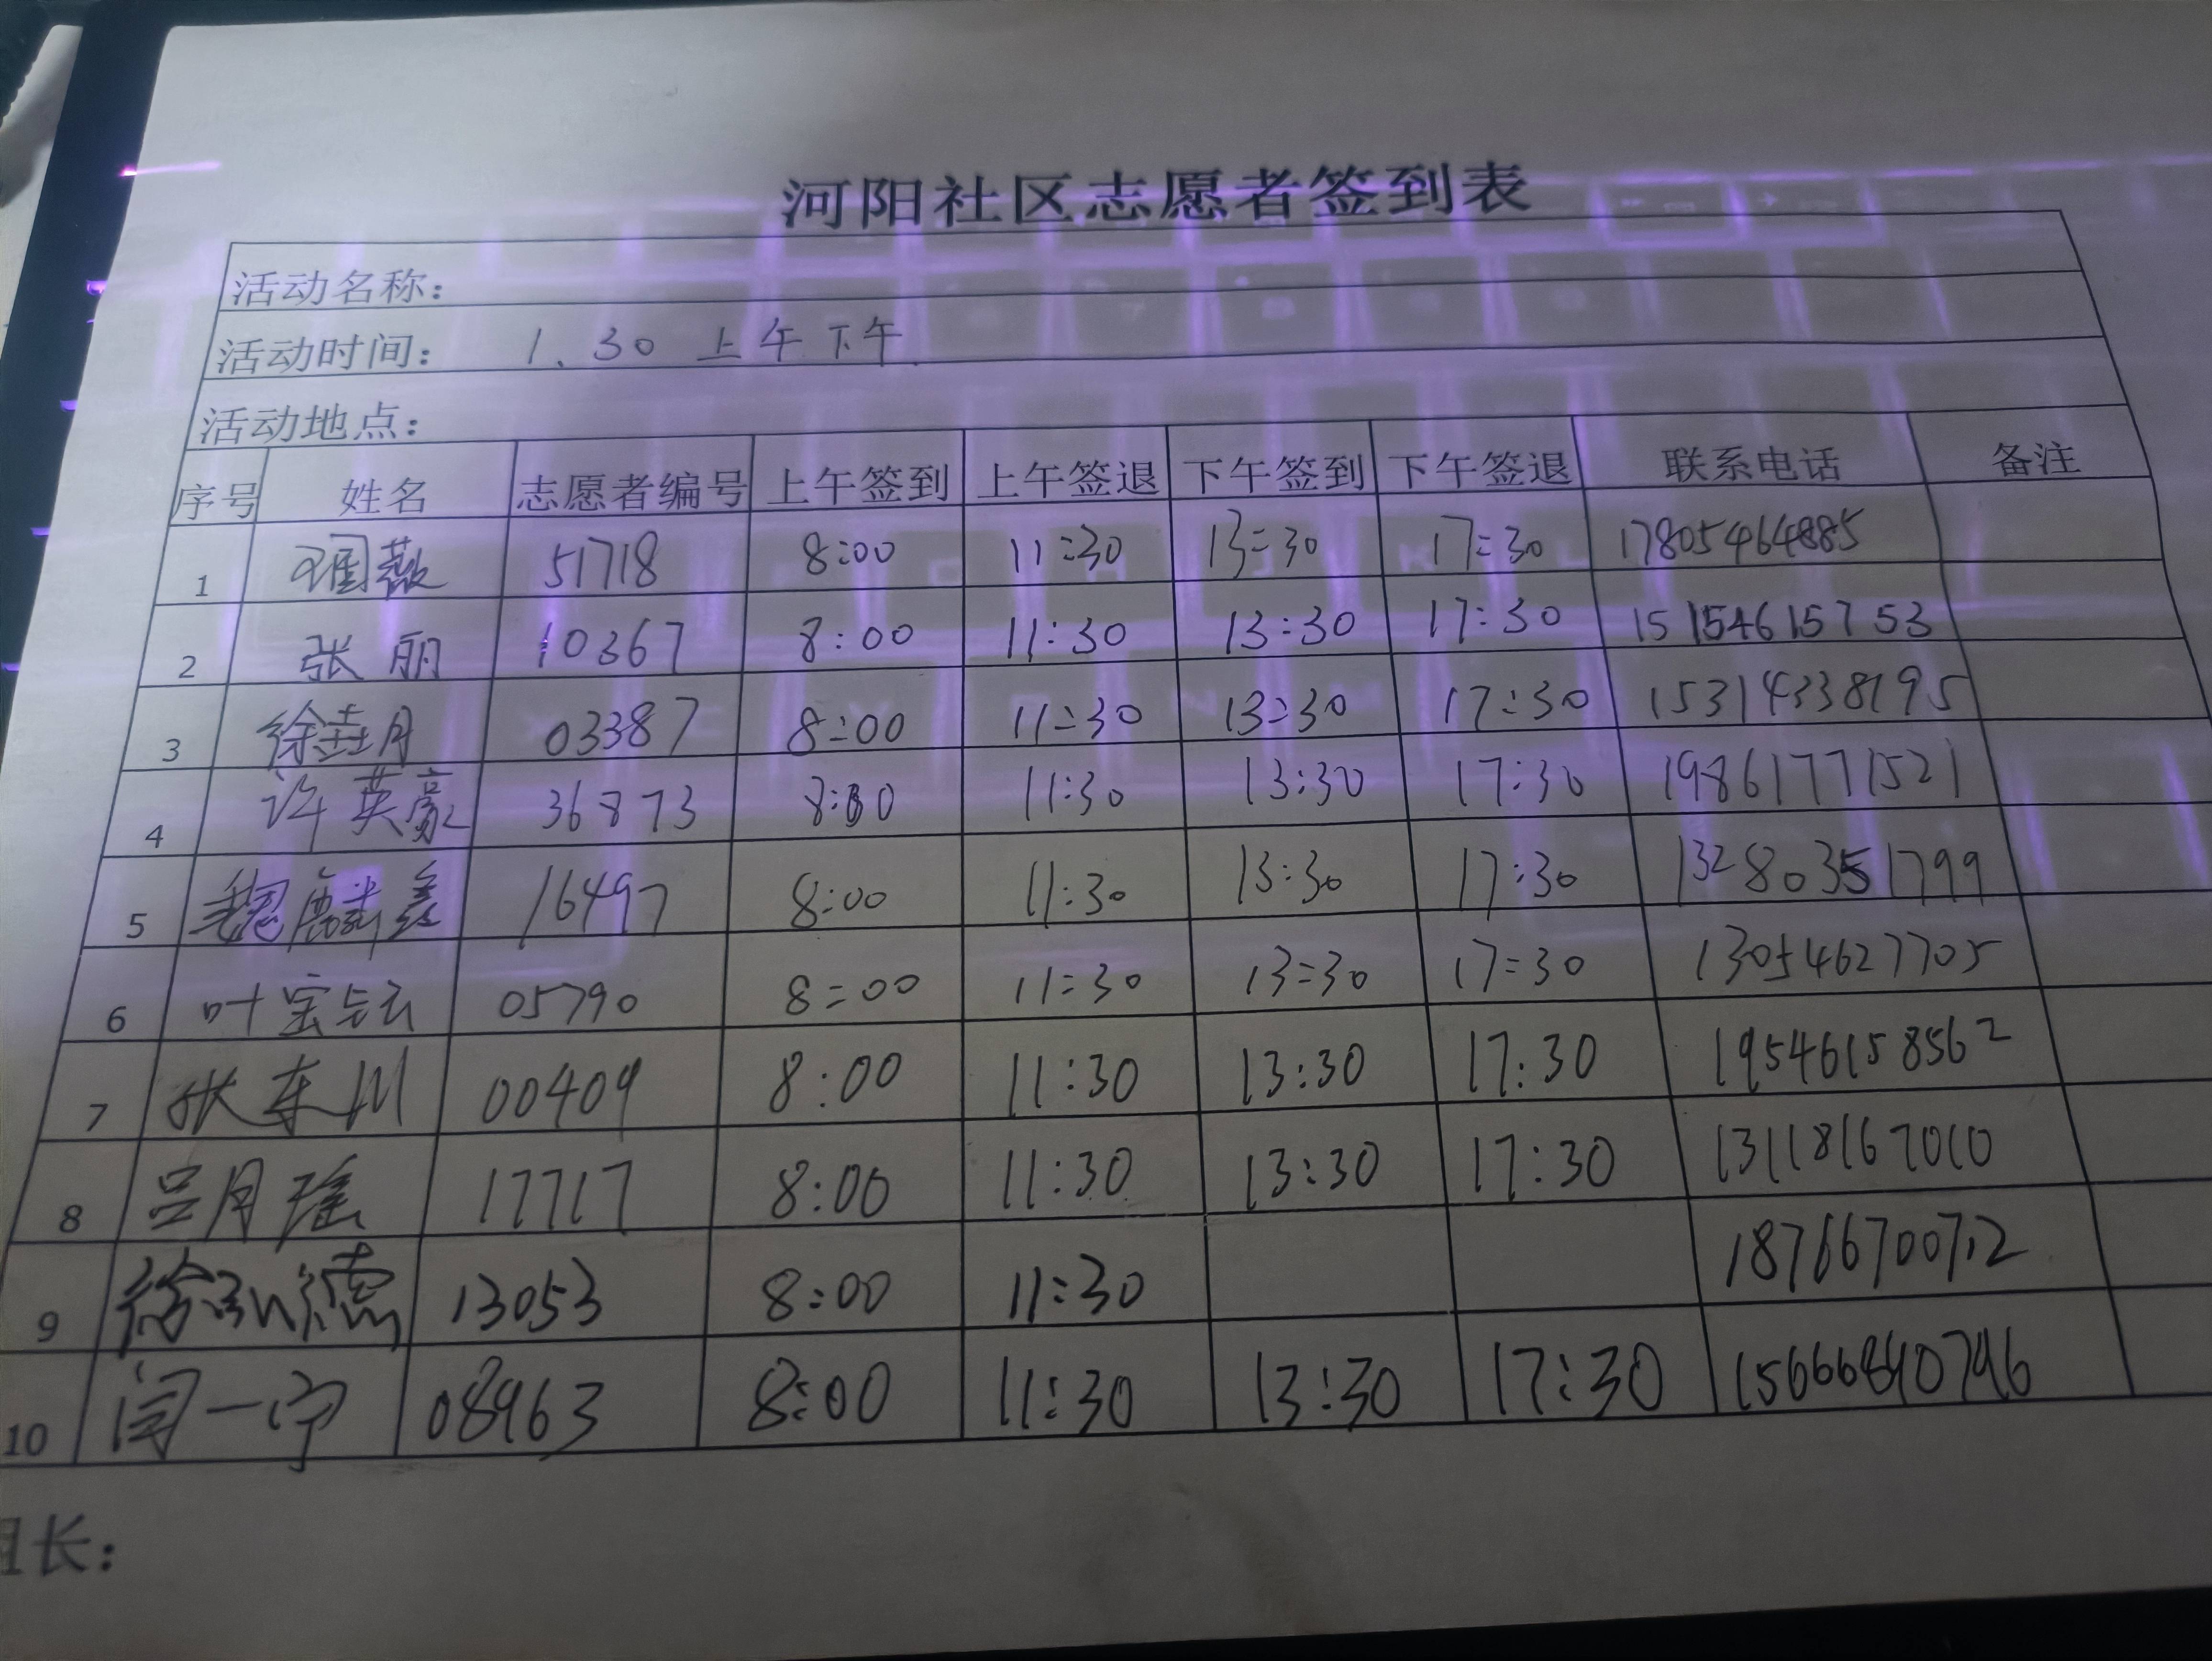 河阳社区志愿者签到表
活动名称：
活动时间： 1.30 上午下午
活动地点：
序号 姓名 志愿者编号 上午签到 上午签退 下午签到 下午签退 联系电话 备注
1 51718 8:00 11:30 13:30 17:30 17805464885
2 张丽 10367 8:00 11:30 13:30 17:30 15154615753
3 徐垚月 03387 8:00 11:30 13:30 17:30 15314338195
4 许英豪 36873 8:00 11:30 13:30 17:30 19861771521
5 魏麟鑫 16497 8:00 11:30 13:30 17:30 13280351799
6 叶宝 05790 8:00 11:30 13:30 17:30 13054627705
7 张东川 00409 8:00 11:30 13:30 17:30 19546158562
8 吕月瑶 17717 8:00 11:30 13:30 17:30 13118167010
9 徐弘德 13053 8:00 11:30 18766700712
10 闫一宁 08963 8:00 11:30 13:30 17:30
组长：